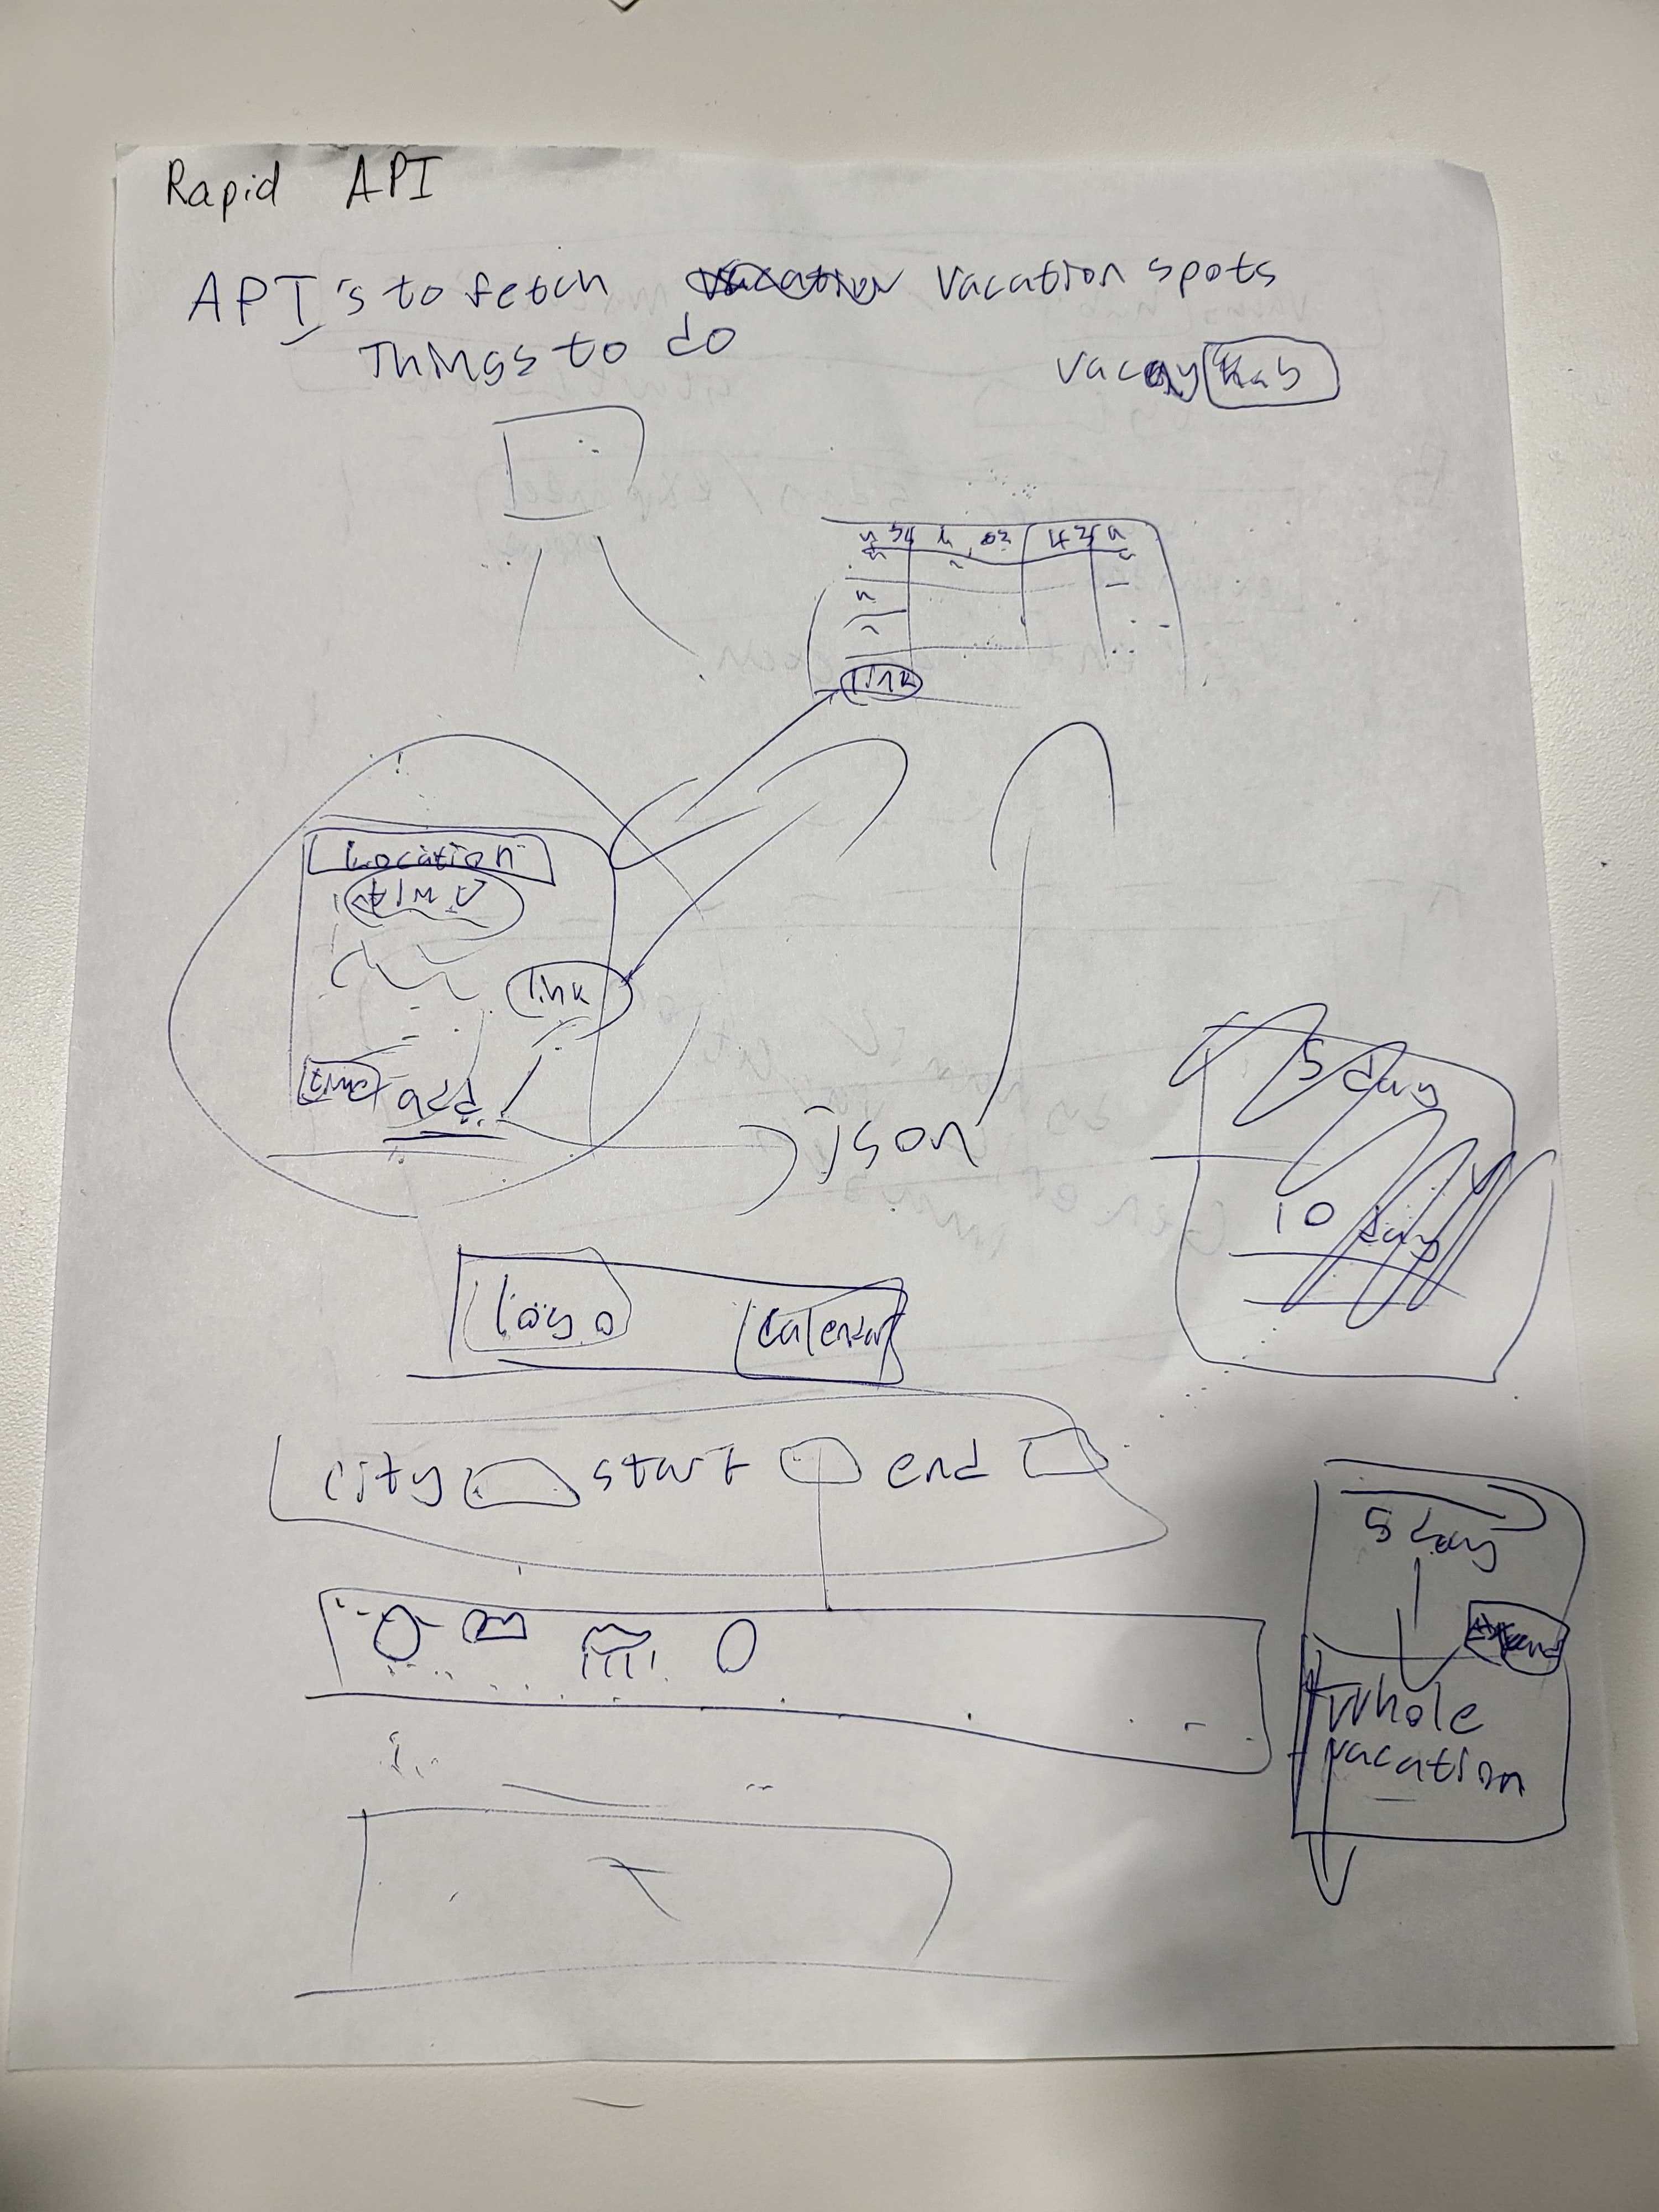 Rapid API
API's to fetch vacation spots
Things to do
vacay
link
Location
link
time add
json
5 day
10 day
logo
calendar
city start end
5 day
Whole
vacation